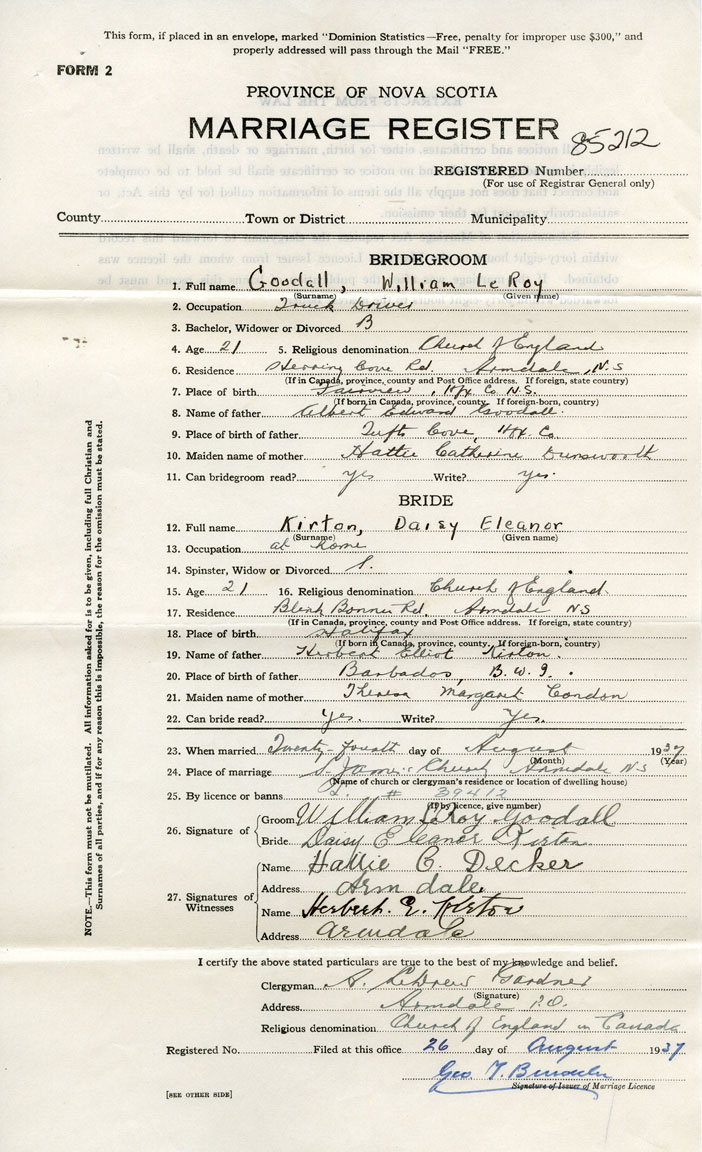 This form, if placed in an envelope, marked "Dominion Statistics—Free, penalty for improper use $300," and
properly addressed will pass through the Mail "FREE."
FORM 2
PROVINCE OF NOVA SCOTIA
MARRIAGE REGISTER 85212
REGISTERED Number
(For use of Registrar General only)
County Town or District Municipality
BRIDEGROOM
1. Full name Goodall, William LeRoy
(Surname) (Given name)
2. Occupation Truck Driver
3. Bachelor, Widower or Divorced B
4. Age 21 5. Religious denomination Church of England
6. Residence Herring Cove Rd. Armdale, N.S
(If in Canada, province, county and Post Office address. If foreign, state country)
7. Place of birth Fairview, Hfx Co N.S.
(If born in Canada, province, county. If foreign-born, county)
8. Name of father Albert Edward Goodall.
9. Place of birth of father Tufts Cove, Hfx Co.
10. Maiden name of mother Hattie Catherine
11. Can bridegroom read? yes Write? yes.
BRIDE
12. Full name Kirton, Daisy Eleanor
(Surname) (Given name)
13. Occupation at home
14. Spinster, Widow or Divorced S.
15. Age 21 16. Religious denomination Church of England.
17. Residence Blink Bonnie Rd. Armdale NS
(If in Canada, province, county and Post Office address. If foreign, state country)
18. Place of birth Halifax
(If born in Canada, province, county. If foreign-born, country)
19. Name of father Herbert Elliot Kirton.
20. Place of birth of father Barbados, B.W.I.
21. Maiden name of mother Theresa Margaret Condon
22. Can bride read? Yes. Write? Yes.
23. When married Twenty-fourth day of August 1937
(Month) (Year)
24. Place of marriage S. James Church Armdale N.S
(Name of church or clergyman's residence or location of dwelling house)
25. By licence or banns L # 39412
(If by licence, give number)
26. Signature of
Groom William LeRoy Goodall
Bride Daisy Eleanor Kirton
27. Signatures of Witnesses
Name Hattie C. Decker
Address Armdale
Name Herbert. E. Kirton
Address Armdale
I certify the above stated particulars are true to the best of my knowledge and belief.
Clergyman A. LeDrew Gardner
(Signature)
Address Armdale P.O.
Religious denomination Church of England in Canada
Registered No. Filed at this office 26 day of August 1937
Geo. T.
Signature of Issuer of Marriage Licence
[SEE OTHER SIDE]
NOTE.—This form must not be mutilated. All information asked for is to be given, including full Christian and
Surnames of all parties, and if for any reason this is impossible, the reason for the omission must be stated.